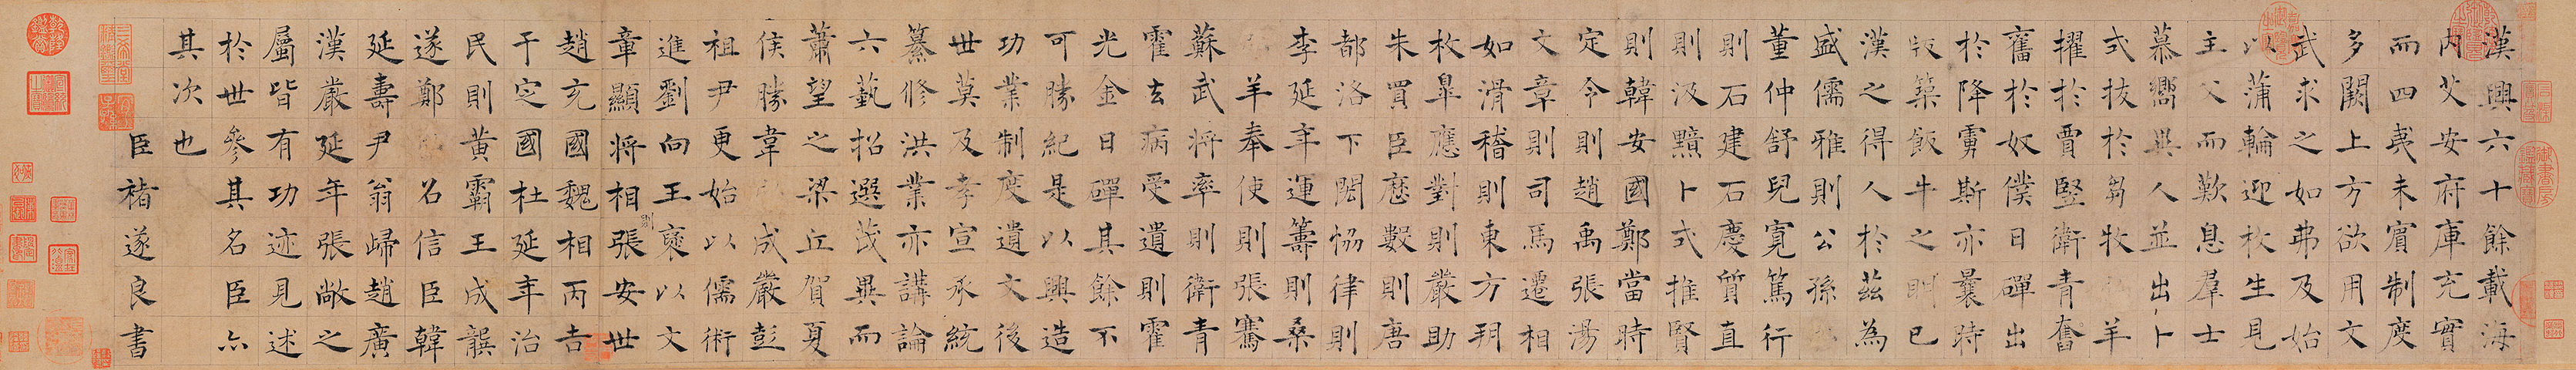 漢興六十餘載海
內艾安府庫充實
而四夷未賓制度
多闕上方欲用文
武求之如弗及始
以蒲輪迎枚生見
主父而歎息羣士
慕嚮異人並出卜
式拔於芻牧羊
擢於賈豎衛青奮
舊於奴僕日磾出
於降虜斯亦曩時
版築飯牛之明已
漢之得人於茲為
盛儒雅則公孫
董仲舒兒寬篤行
則石建石慶質直
則汲黯卜式推賢
則韓安國鄭當時
定令則趙禹張湯
文章則司馬遷相
如滑稽則東方朔
枚皋應對則嚴助
朱買臣歷數則唐
都洛下閎恊律則
李延年運籌則桑
羊奉使則張騫
蘇武將率則衛青
霍去病受遺則霍
光金日磾其餘不
可勝紀是以興造
功業制度遺文後
世莫及孝宣承統
纂修洪業亦講論
六藝招選茂異而
蕭望之梁丘賀夏
侯勝韋成嚴彭
祖尹更始以儒術
進劉向王褒以文
章顯將相張安世
趙充國魏相丙吉
于定國杜延年治
民則黃霸王成龔
遂鄭召信臣韓
延壽尹翁歸趙廣
漢嚴延年張敞之
屬皆有功迹見述
於世參其名臣亦
其次也
臣褚遂良書